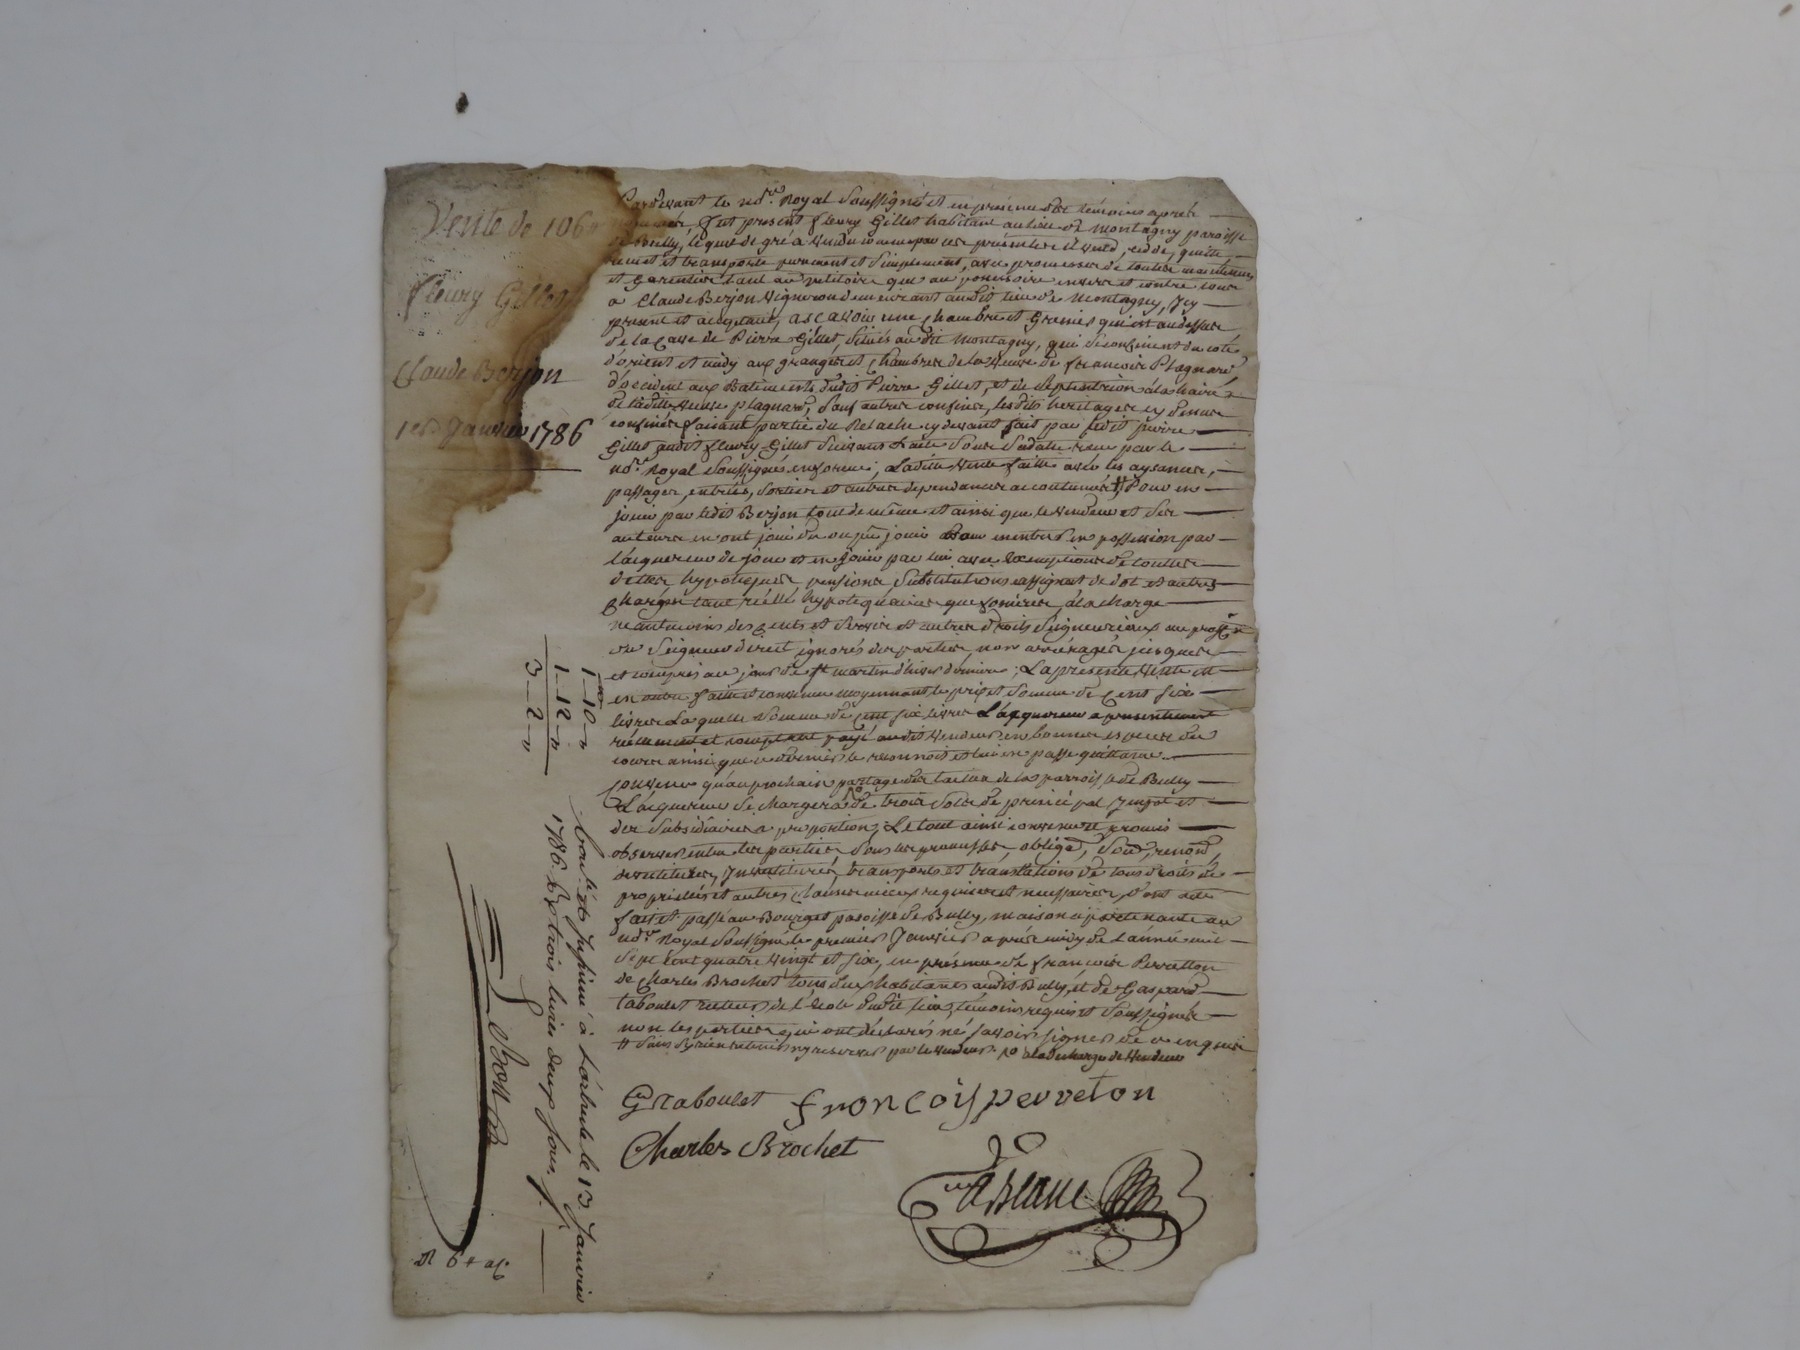 Vente de 106
fleury Gillet
Claude Berjon
1er Janvier 1786
Pardevant le no.re Royal Soussigné et en présence des témoins après
fut present fleury Gillet habitant au lieu de Montagny paroisse
de Bully, lequel de gré a vendu comme par ces présentes il vend, cedde, quitte
remet et transporte purement et simplement, avec promesse de toutte maintenue
et Garentie tant au petitoire que au possessoire envers et contre tous
a Claude Berjon vigneron demeurant audit lieu de Montagny, Icy
present et acceptant, ascavoir une chambre et Grenier qui est audessus
de la Cave de Pierre Gillet, situés audit Montagny, qui se confinent du coté
d'orient et midy aux granges et chambres de la veuve de francois Plagnard
d'occident aux Batiments dudit Pierre Gillet, et de septentrion
de ladite veuve plagnard, Sauf autres confins, lesdits heritages cy dessus
confinés faisant partie du Relache cy devant fait par ledit pierre
Gillet audit fleury Gillet suivant acte sous sadate reçu par le
no.re Royal Soussigné en forme; Ladite vente faitte avec les aysances,
passages, entrées, sorties et autres dependances accoutumées # Pour en
jouir par ledit Berjon tout de même et ainsi que le vendeur et ses
auteurs en ont joui du ou pû jouir pour en entrer en possession par
l'acquereur de jour et en jouir par lui avec exemptions de touttes
dettes hypotheques pensions substitutions assignat de dot et autres
charges tant réelle hypotéquaires que foncieres, à la charge
neantmoins des cents et servis et autres droits Seigneuriaux au proffit
du Seigneur direct ignorés des parties, non arréragés jusques
et compris au jour de st martin d'hiver derniere; La presente vente est
en outre faitte et convenue moyennant le prix et somme de cent six
livres Laquelle somme de cent six livres L'acquereur a presentement
réellement et comptant payé audit vendeur en bonnes especes du
cours ainsi que ce dernier le reconnoit et lui en passe quittance
Convenu qu'au prochain partage des tailles de la parroisse de Bully
L'acquereur se chargera de trois sols de principal Impot et
des subsidiaires a proportion; Le tout ainsi convenu et promis
observer entre les parties sous les promesses, obligé, soum, renond,
devetitures, Investitures, transports et translations de tous droits de
propriétés et autres clauses mieux requises et necessaires, dont acte
fait et passé au Bourget paroisse de Bully, maison appartenante au
no.re Royal Soussigné le premier Janvier après midy de L'année mil
sept cent quatre vingt et six, en présence de francois Perretton
de Charles Brochet tous deux habitants audit Bully, et de Gaspard
taboulet recteur de l'école dudit lieu, témoins requis et soussignés
non les parties qui ont déclarés né savoir signer de ce enquis
# sans s'y rien retenir ny reserver par le vendeur. a la decharge du Vendeur
G taboulet françois perreton
Charles Brochet
1–10–"
1–12–"
3–2–"
Cont.lé et Insinué à L'arbresle le 13 Janvier
1786. R trois livres deux sous.